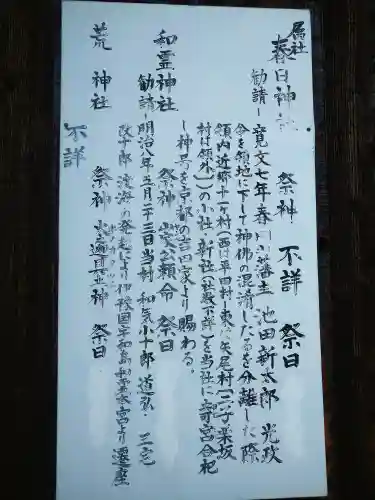 属社
春日神社 祭神 不詳 祭日
勧請ー寛文七年春 藩主 池田新太郎 光政
令を領地に下して神佛の混淆したるを分離した際
領内近郷十一ヶ村(西は平田村、東は矢尾村(二子、栗坂
村は領外))の小社、新社(社数不詳)を当社に寄宮合祀
し神号を京都の吉田家より賜わる。
和霊神社 祭神 山家公頼命 祭日
勧請ー明治八年五月二十三日当村 和気小十郎 道弘、三宅
改十郎 淩海の発起により伊豫国宇和島和霊本宮より遷座
荒神社 祭神 火遍具土神 祭日
不詳